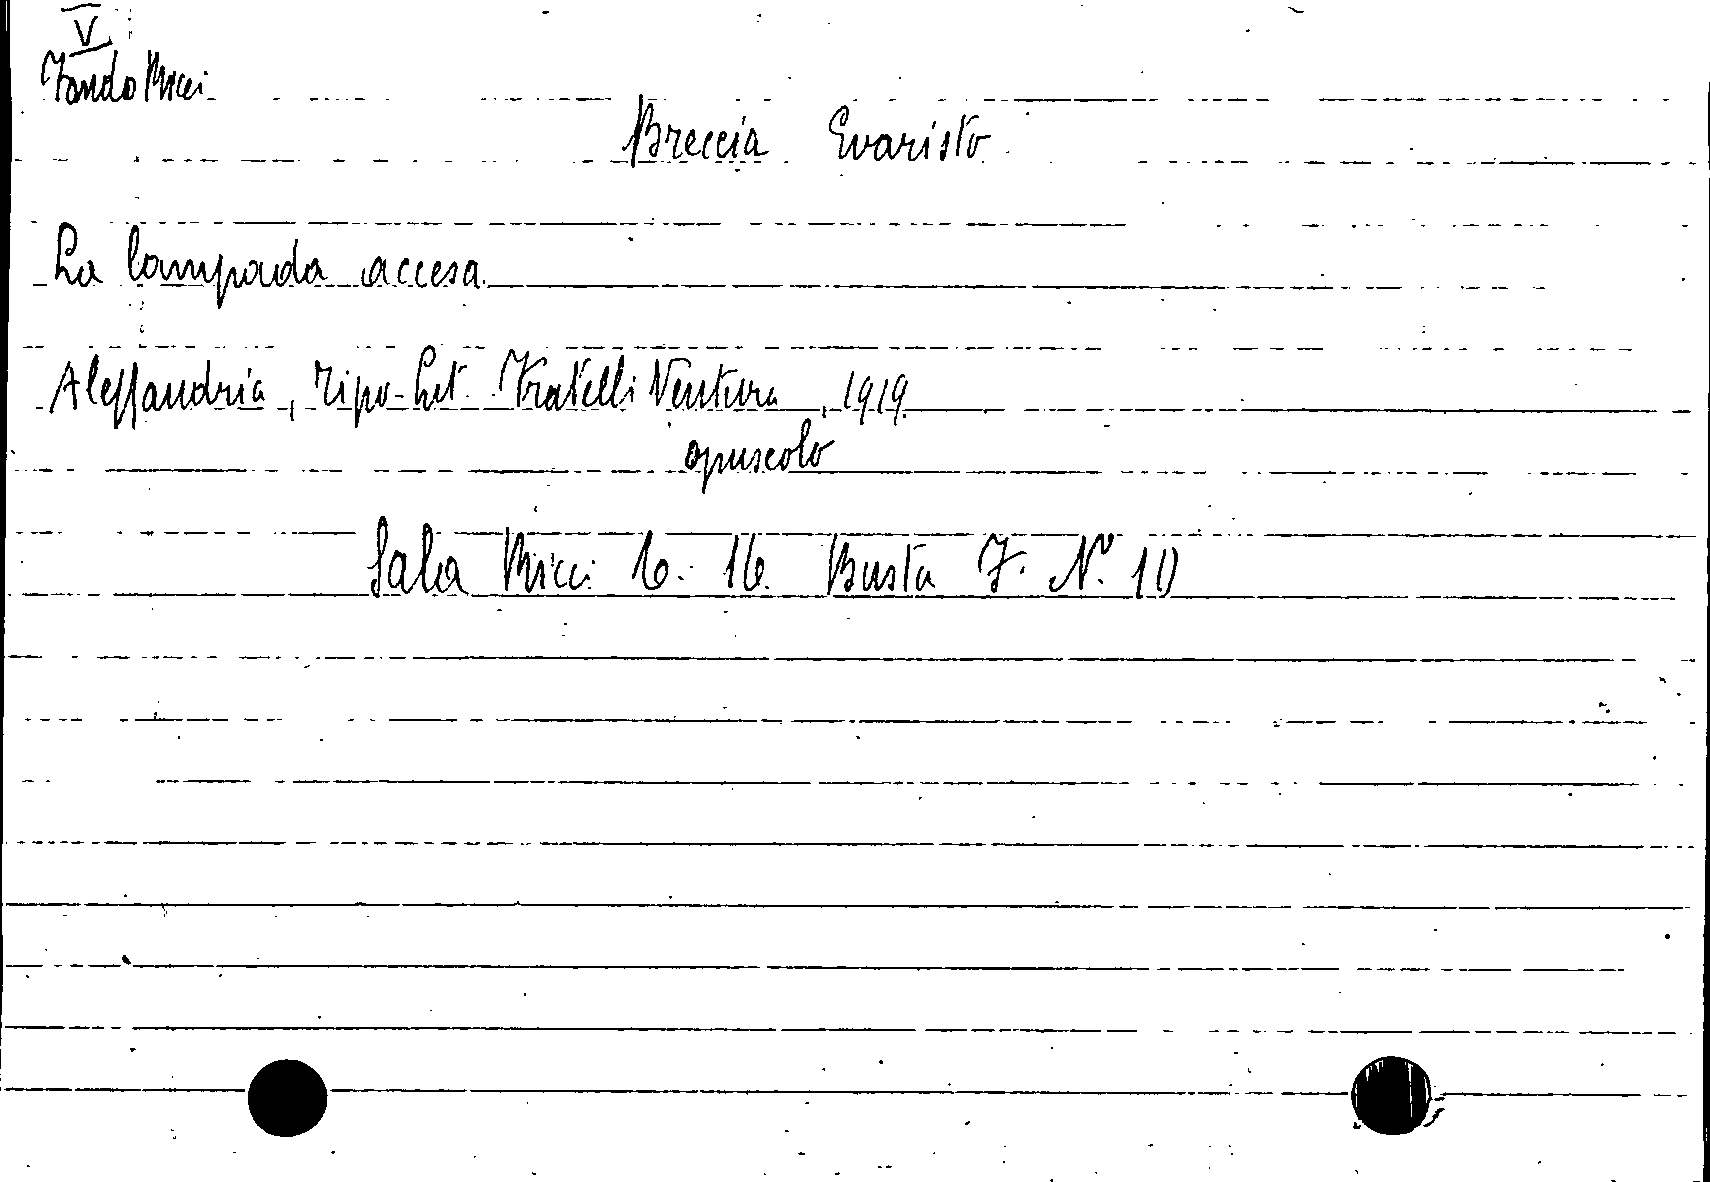 V
Fondo Ricci
Breccia Evaristo
La lampada accesa
Alessandria, Tipo-Lit. Fratelli Ventura, 1919
opuscolo
Sala Ricci 6. 16. Busta F. N. 10